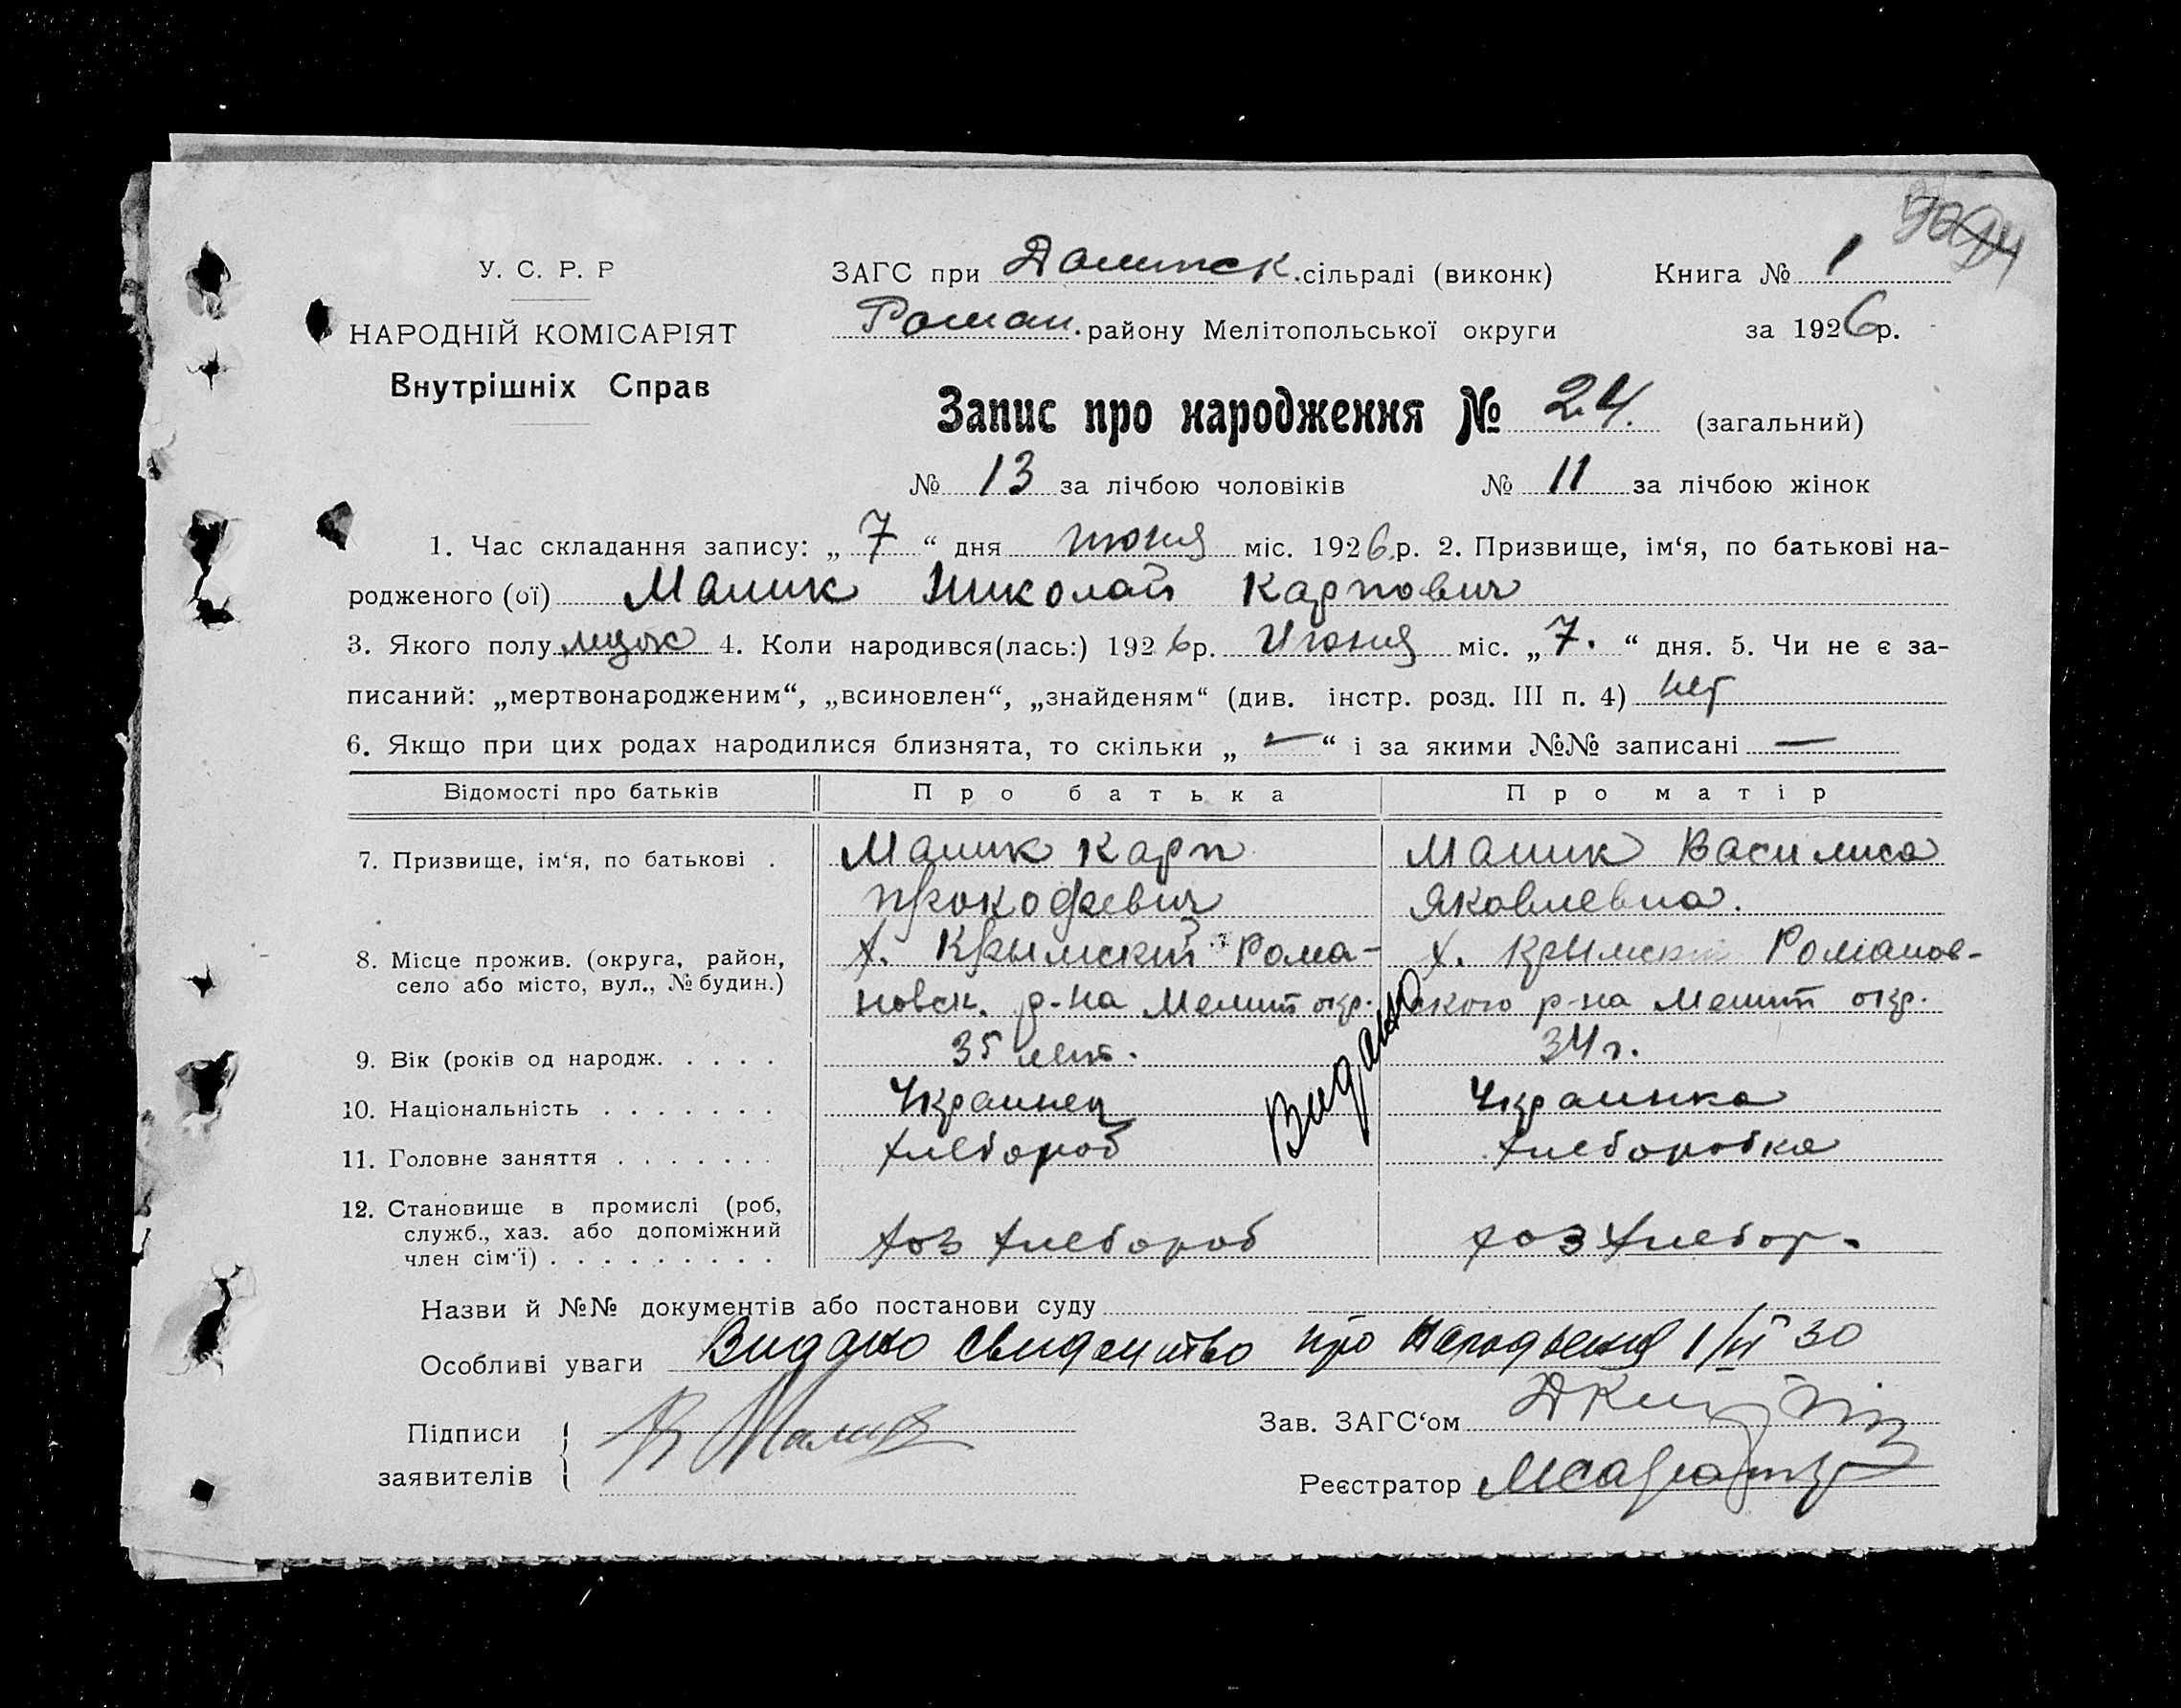 У. С. Р. Р
НАРОДНІЙ КОМІСАРІЯТ
Внутрішніх Справ
ЗАГС при Долинск. сільраді (виконк) Книга № 1
Роман. району Мелітопольської округи за 1926р.
Запис про народження № 24. (загальний)
№ 13 за лічбою чоловіків № 11 за лічбою жінок
1. Час складання запису: „ 7 “ дня июня міс. 1926.р. 2. Призвище, ім‘я, по батькові на-
родженого (ої) Малик Николай Карпович
3. Якого полу муж 4. Коли народився(лась:) 1926р. Июня міс. „ 7. “ дня. 5. Чи не є за-
писаний: „мертвонародженим“, „всиновлен“, „знайденям“ (див. інстр. розд. III п. 4) нет
6. Якщо при цих родах народилися близнята, то скільки „ — “ і за якими №№ записані —
Відомості про батьків Про батька Про матір
7. Призвище, ім‘я, по батькові . Малик Карп Малик Василиса
Прокофевич Яковлевна.
8. Місце прожив. (округа, район, х. Крымский Рома- х. Крымский Романов-
село або місто, вул., № будин.) новск. р-на Мелит окр. ского р-на Мелит окр.
9. Вік (років од народж. . . . . 35 лет. 34 г.
10. Національність . . . . . . . Украинец Украинка
Видано
11. Головне заняття . . . . . . . хлебороб хлеборобка
12. Становище в промислі (роб,
служб., хаз. або допоміжний хоз хлебороб хоз хлебор.
член сім‘ї) . . . . . . . . .
Назви й №№ документів або постанови суду
Особливі уваги Видано свидецтво про народження 1/VI 30
Підписи Малик Зав. ЗАГС‘ом
заявителів Реєстратор